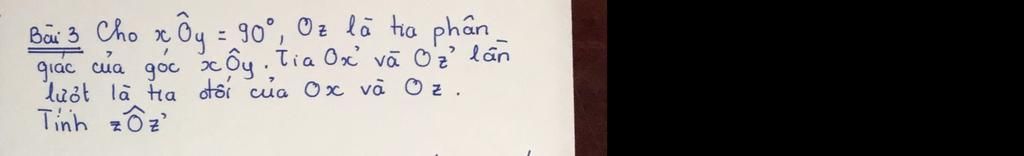 Bài 3 Cho xÔy = 90°, Oz là tia phân
giác của góc xÔy. Tia Ox' và Oz' lần
lượt là tia đối của Ox và Oz.
Tính zÔz'